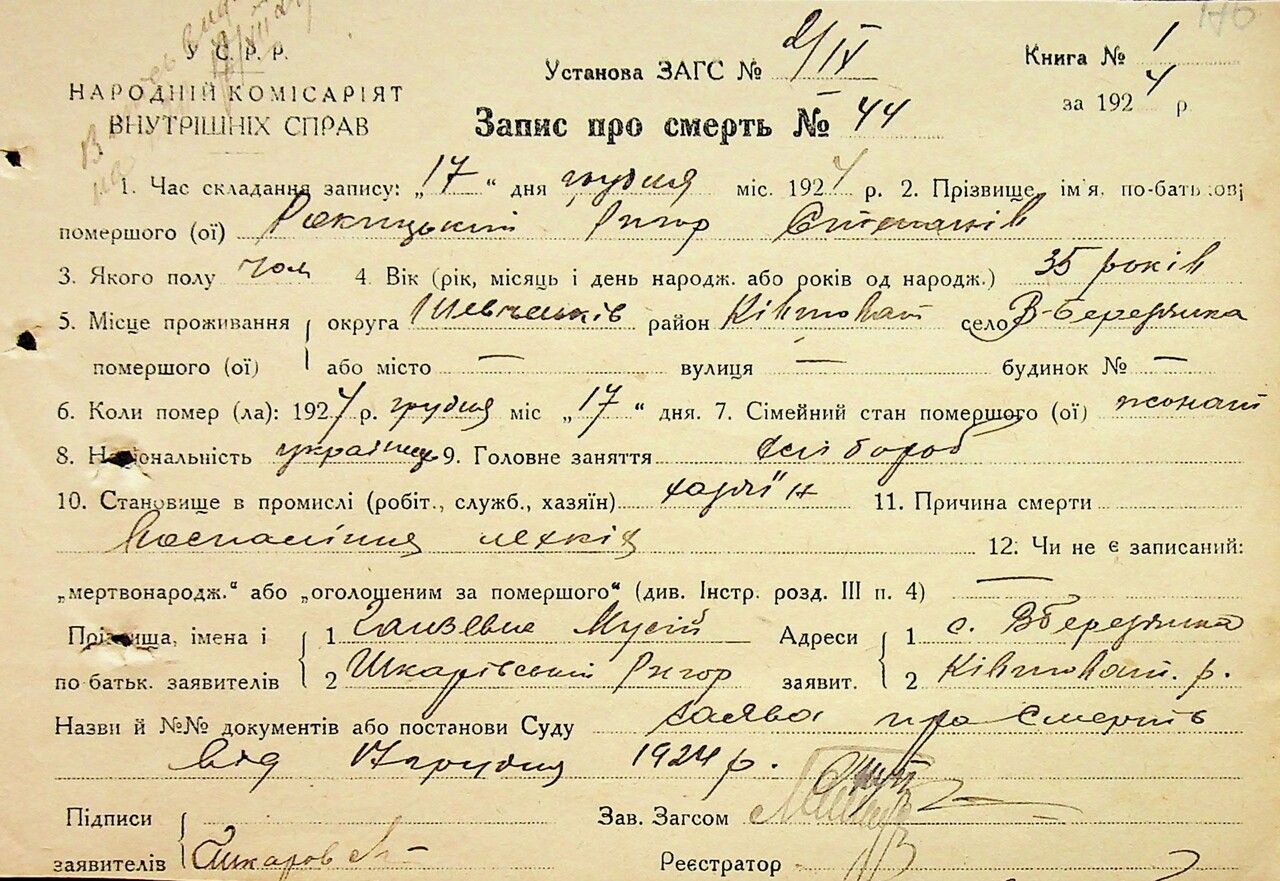 176
У С. Р. Р.
НАРОДНІЙ КОМІСАРІЯТ
ВНУТРІШНІХ СПРАВ
Установа ЗАГС № 2/IX
Книга № 1
за 1924 р.
Запис про смерть № 44
1. Час складання запису: „17“ дня грудня міс. 1924 р. 2. Прізвище, ім'я, по-батькові
помершого (ої) Ракицький Ригор Степанів
3. Якого полу чол 4. Вік (рік, місяць і день народж. або років од народж.) 35 років
5. Місце проживання округа Шевченків район Ківшоват село В-Березянка
помершого (ої) або місто — вулиця — будинок № —
6. Коли помер (ла): 1924 р. грудня міс „17“ дня. 7. Сімейний стан помершого (ої) жонат
8. Національність українець 9. Головне заняття хлібороб
10. Становище в промислі (робіт., служб., хазяїн) хазяїн 11. Причина смерти
Воспаління легків 12. Чи не є записаний:
„мертвонародж.“ або „оголошеним за помершого“ (див. Інстр. розд. III п. 4) —
Прізвища, імена і 1 Мусій Адреси 1 с. ВБерезянка
по батьк. заявителів 2 Шкарівський Ригор заявит. 2 Ківшоват. р.
Назви й №№ документів або постанови Суду заява про смерть
від 17 грудня 1924 р.
Підписи Зав. Загсом
заявителів Реєстратор